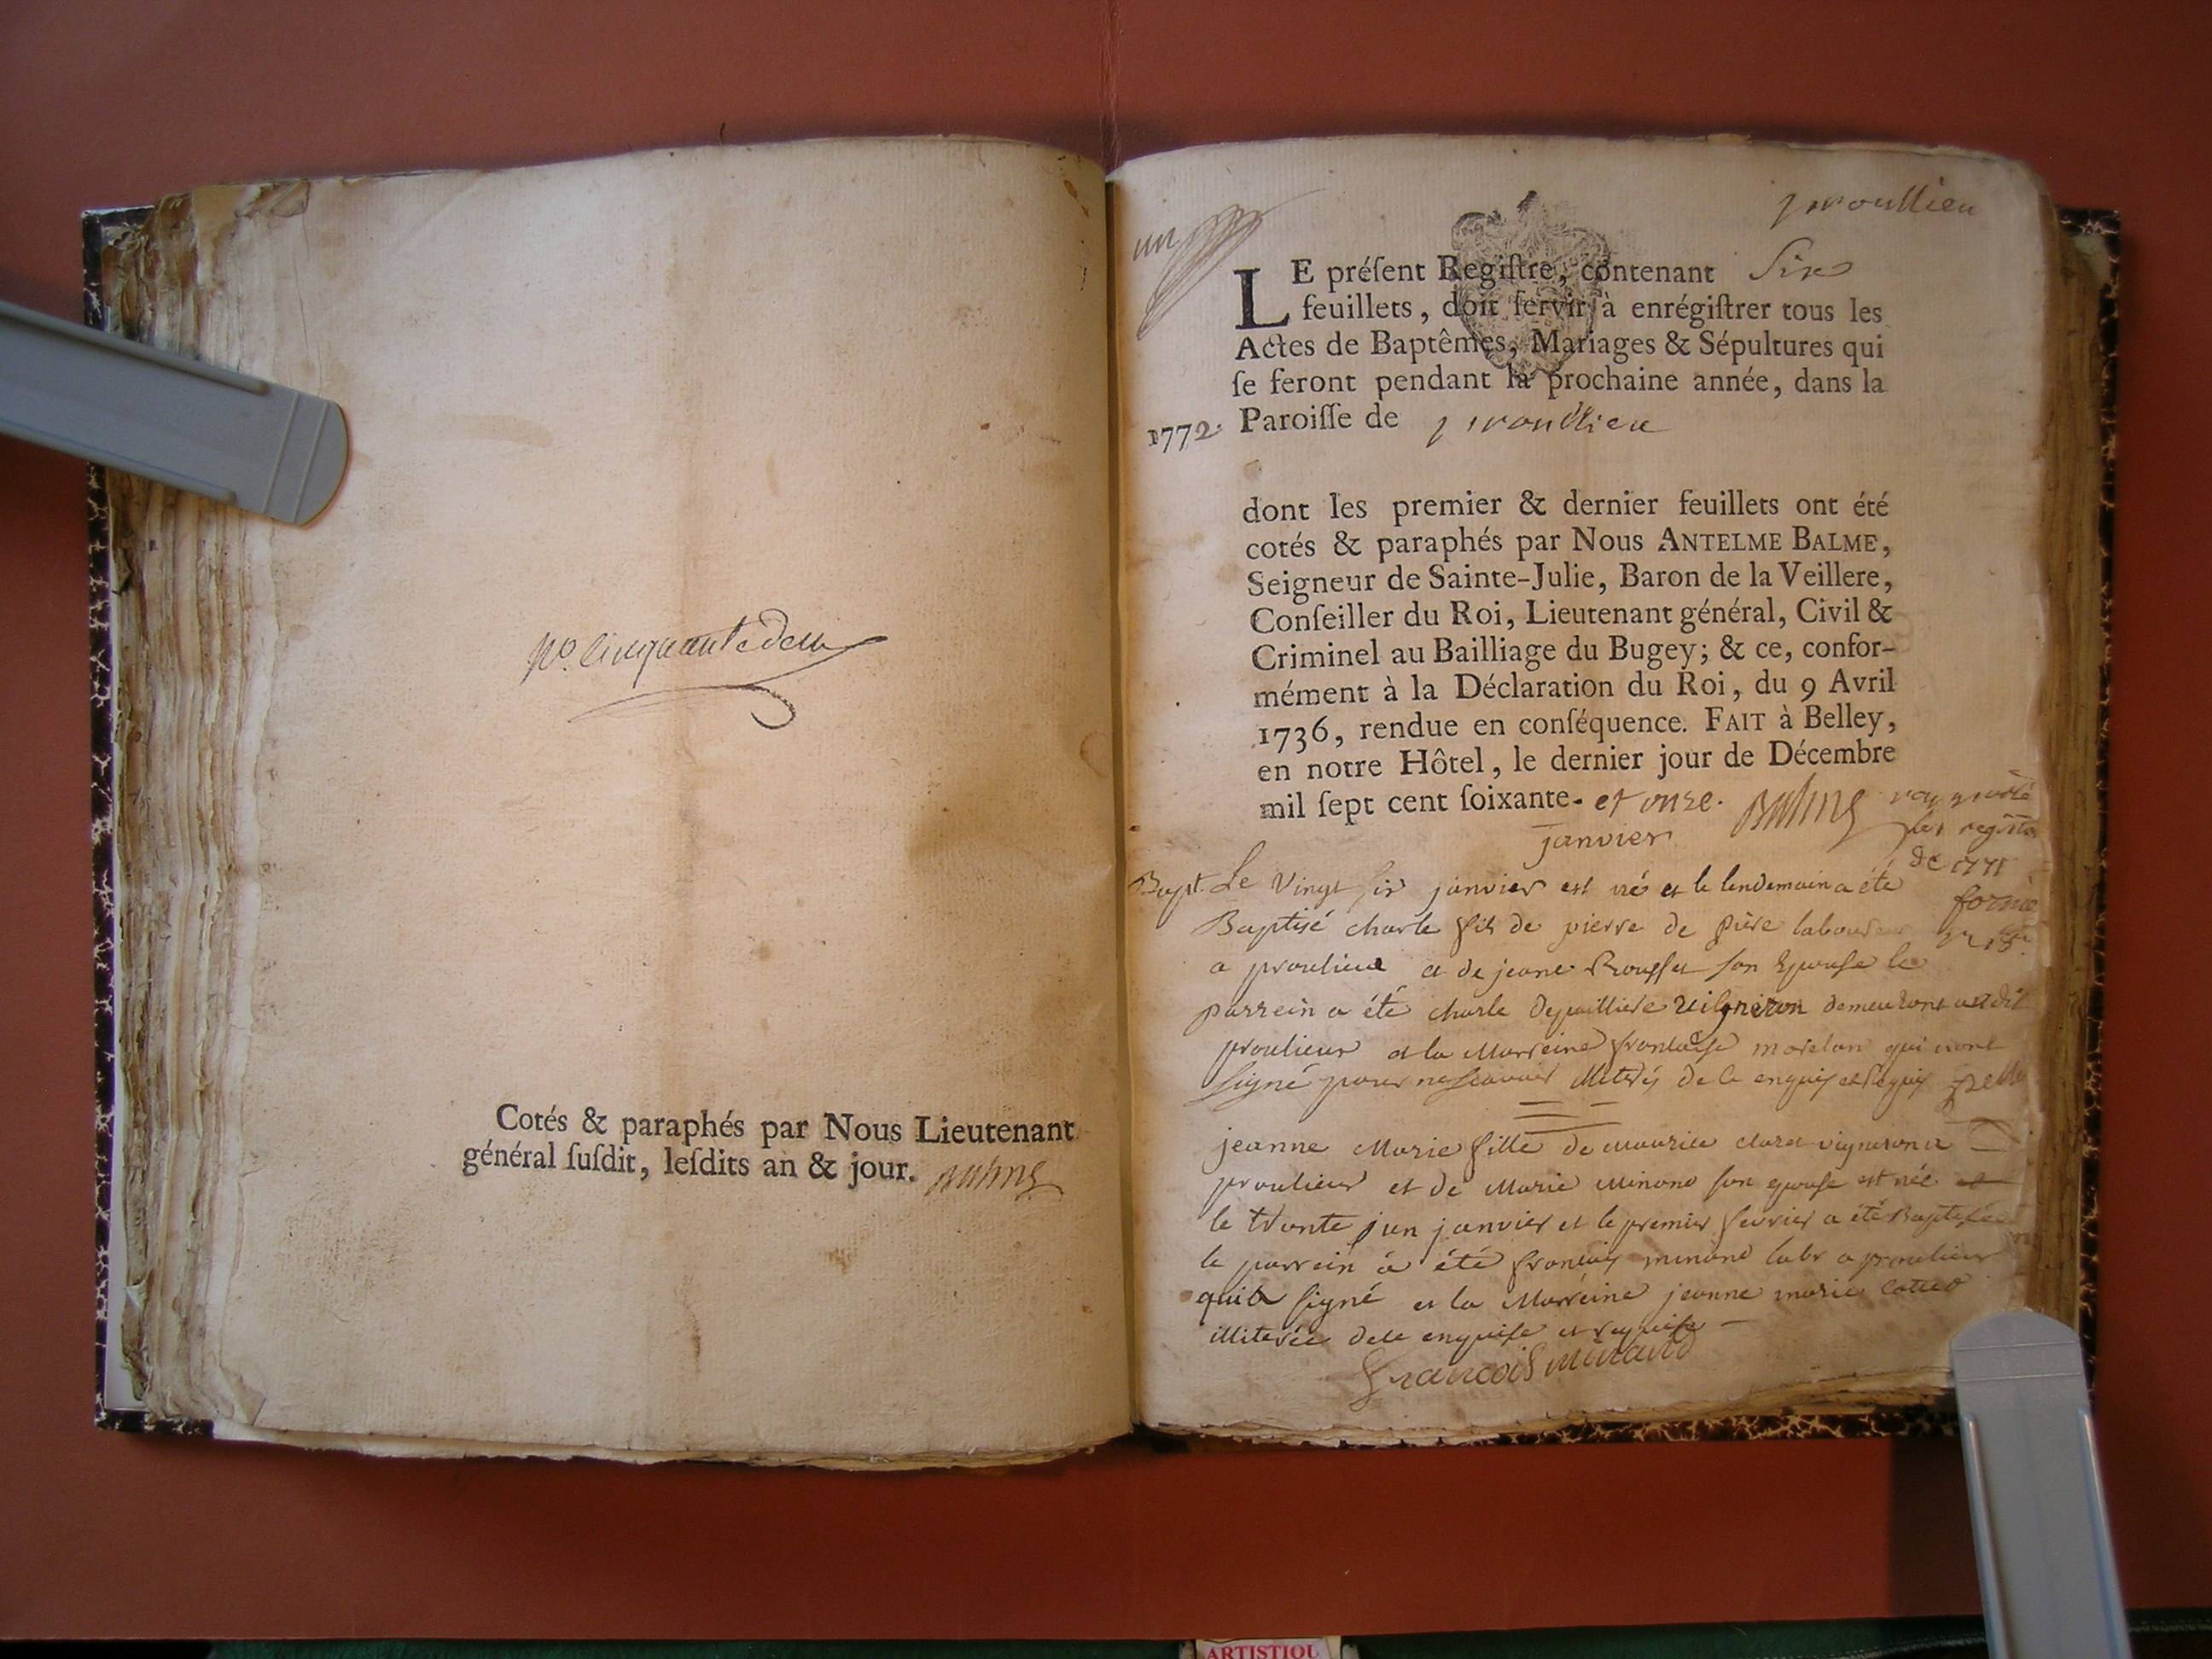 No. Cinquante deux
Cotés & paraphés par Nous Lieutenant
général ſuſdit, leſdits an & jour. Balme
un
proullieu
LE préſent Regiſtre, contenant Six
feuillets, doit ſervir à enrégiſtrer tous les
Actes de Baptêmes, Mariages & Sépultures qui
ſe feront pendant la prochaine année, dans la
1772. Paroiſſe de proullieu
dont les premier & dernier feuillets ont été
cotés & paraphés par Nous ANTELME BALME,
Seigneur de Sainte-Julie, Baron de la Veillere,
Conſeiller du Roi, Lieutenant général, Civil &
Criminel au Bailliage du Bugey; & ce, confor-
mément à la Déclaration du Roi, du 9 Avril
1736, rendue en conſéquence. FAIT à Belley,
en notre Hôtel, le dernier jour de Décembre
mil ſept cent ſoixante- et onze. Balme
janvier
Bapt. Le Vingt six janvier est né et le lendemain a été
Baptisé charle fils de pierre de laboureur
a proulieu et de jeane son Epouse le
parrein a été charle vigneron demeurant
proulieu et la Marreine qui n'ont
signé pour ne scavoir de ce enquis et requis
jeanne Marie fille de Maurice claret vigneron a
proulieu et de Marie Minand son epouse est née
le trente jun janvier et le premier fevrier a été Baptisée
le parrein a été françois minand labr a proulieu
qui a signé et la Marreine jeanne marie
illiterée de ce enquise et requise
François minand